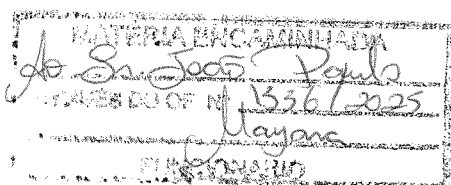 MATÉRIA ENCAMINHADA
Ao Sr. João Paulo
ATRAVÉS DO OF Nº 1336/2025
Mayara
FUNCIONÁRIO